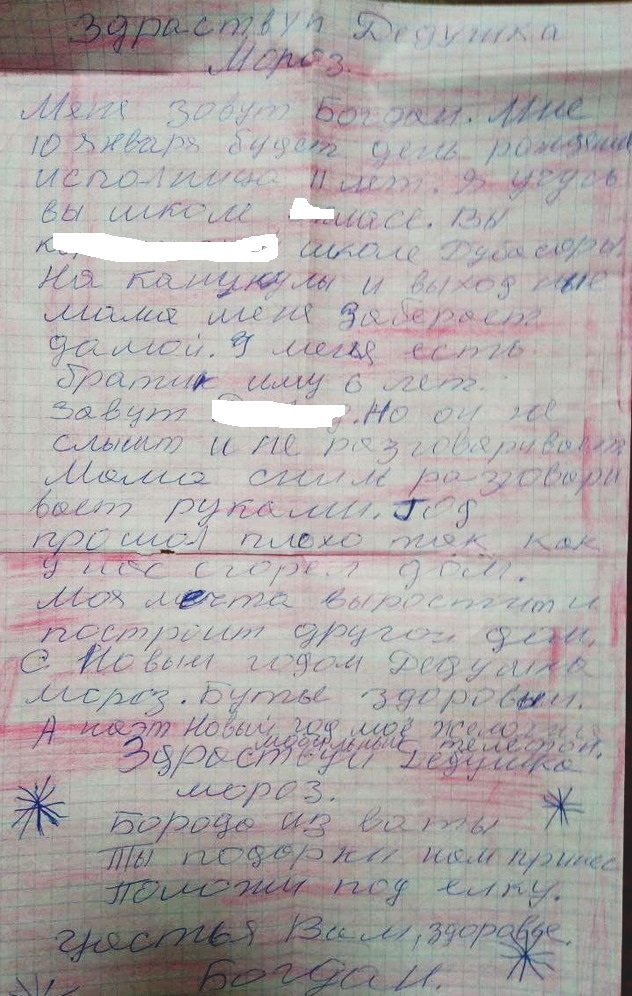 Здраствуй Дедушка
Мороз.
Меня зовут Богдан. Мне
10 января будет день рождения
исполница 11 лет. Я учусь
вы школе ласе. Вы
школе Дубасары.
На канукулы и выходные
мама меня заберает
дамой. У меня есть
братик иму 6 лет.
Завут Но он не
слышит и не разговаривает
Мама сним разговари
вает руками. Год
прошол плохо так как
у нас сгорел дом.
Моя мечта выростит и
построит другой дом.
С Новым годом Дедушка
мороз. Буты здоровым.
А наэт Новый год моё желания
мобильные телефон.
Здраствуй Дедушка
мороз.
Борода из ваты
Ты подарки нам принес
Положи под елку.
Щястья Вам, здоравье.
Богдан.